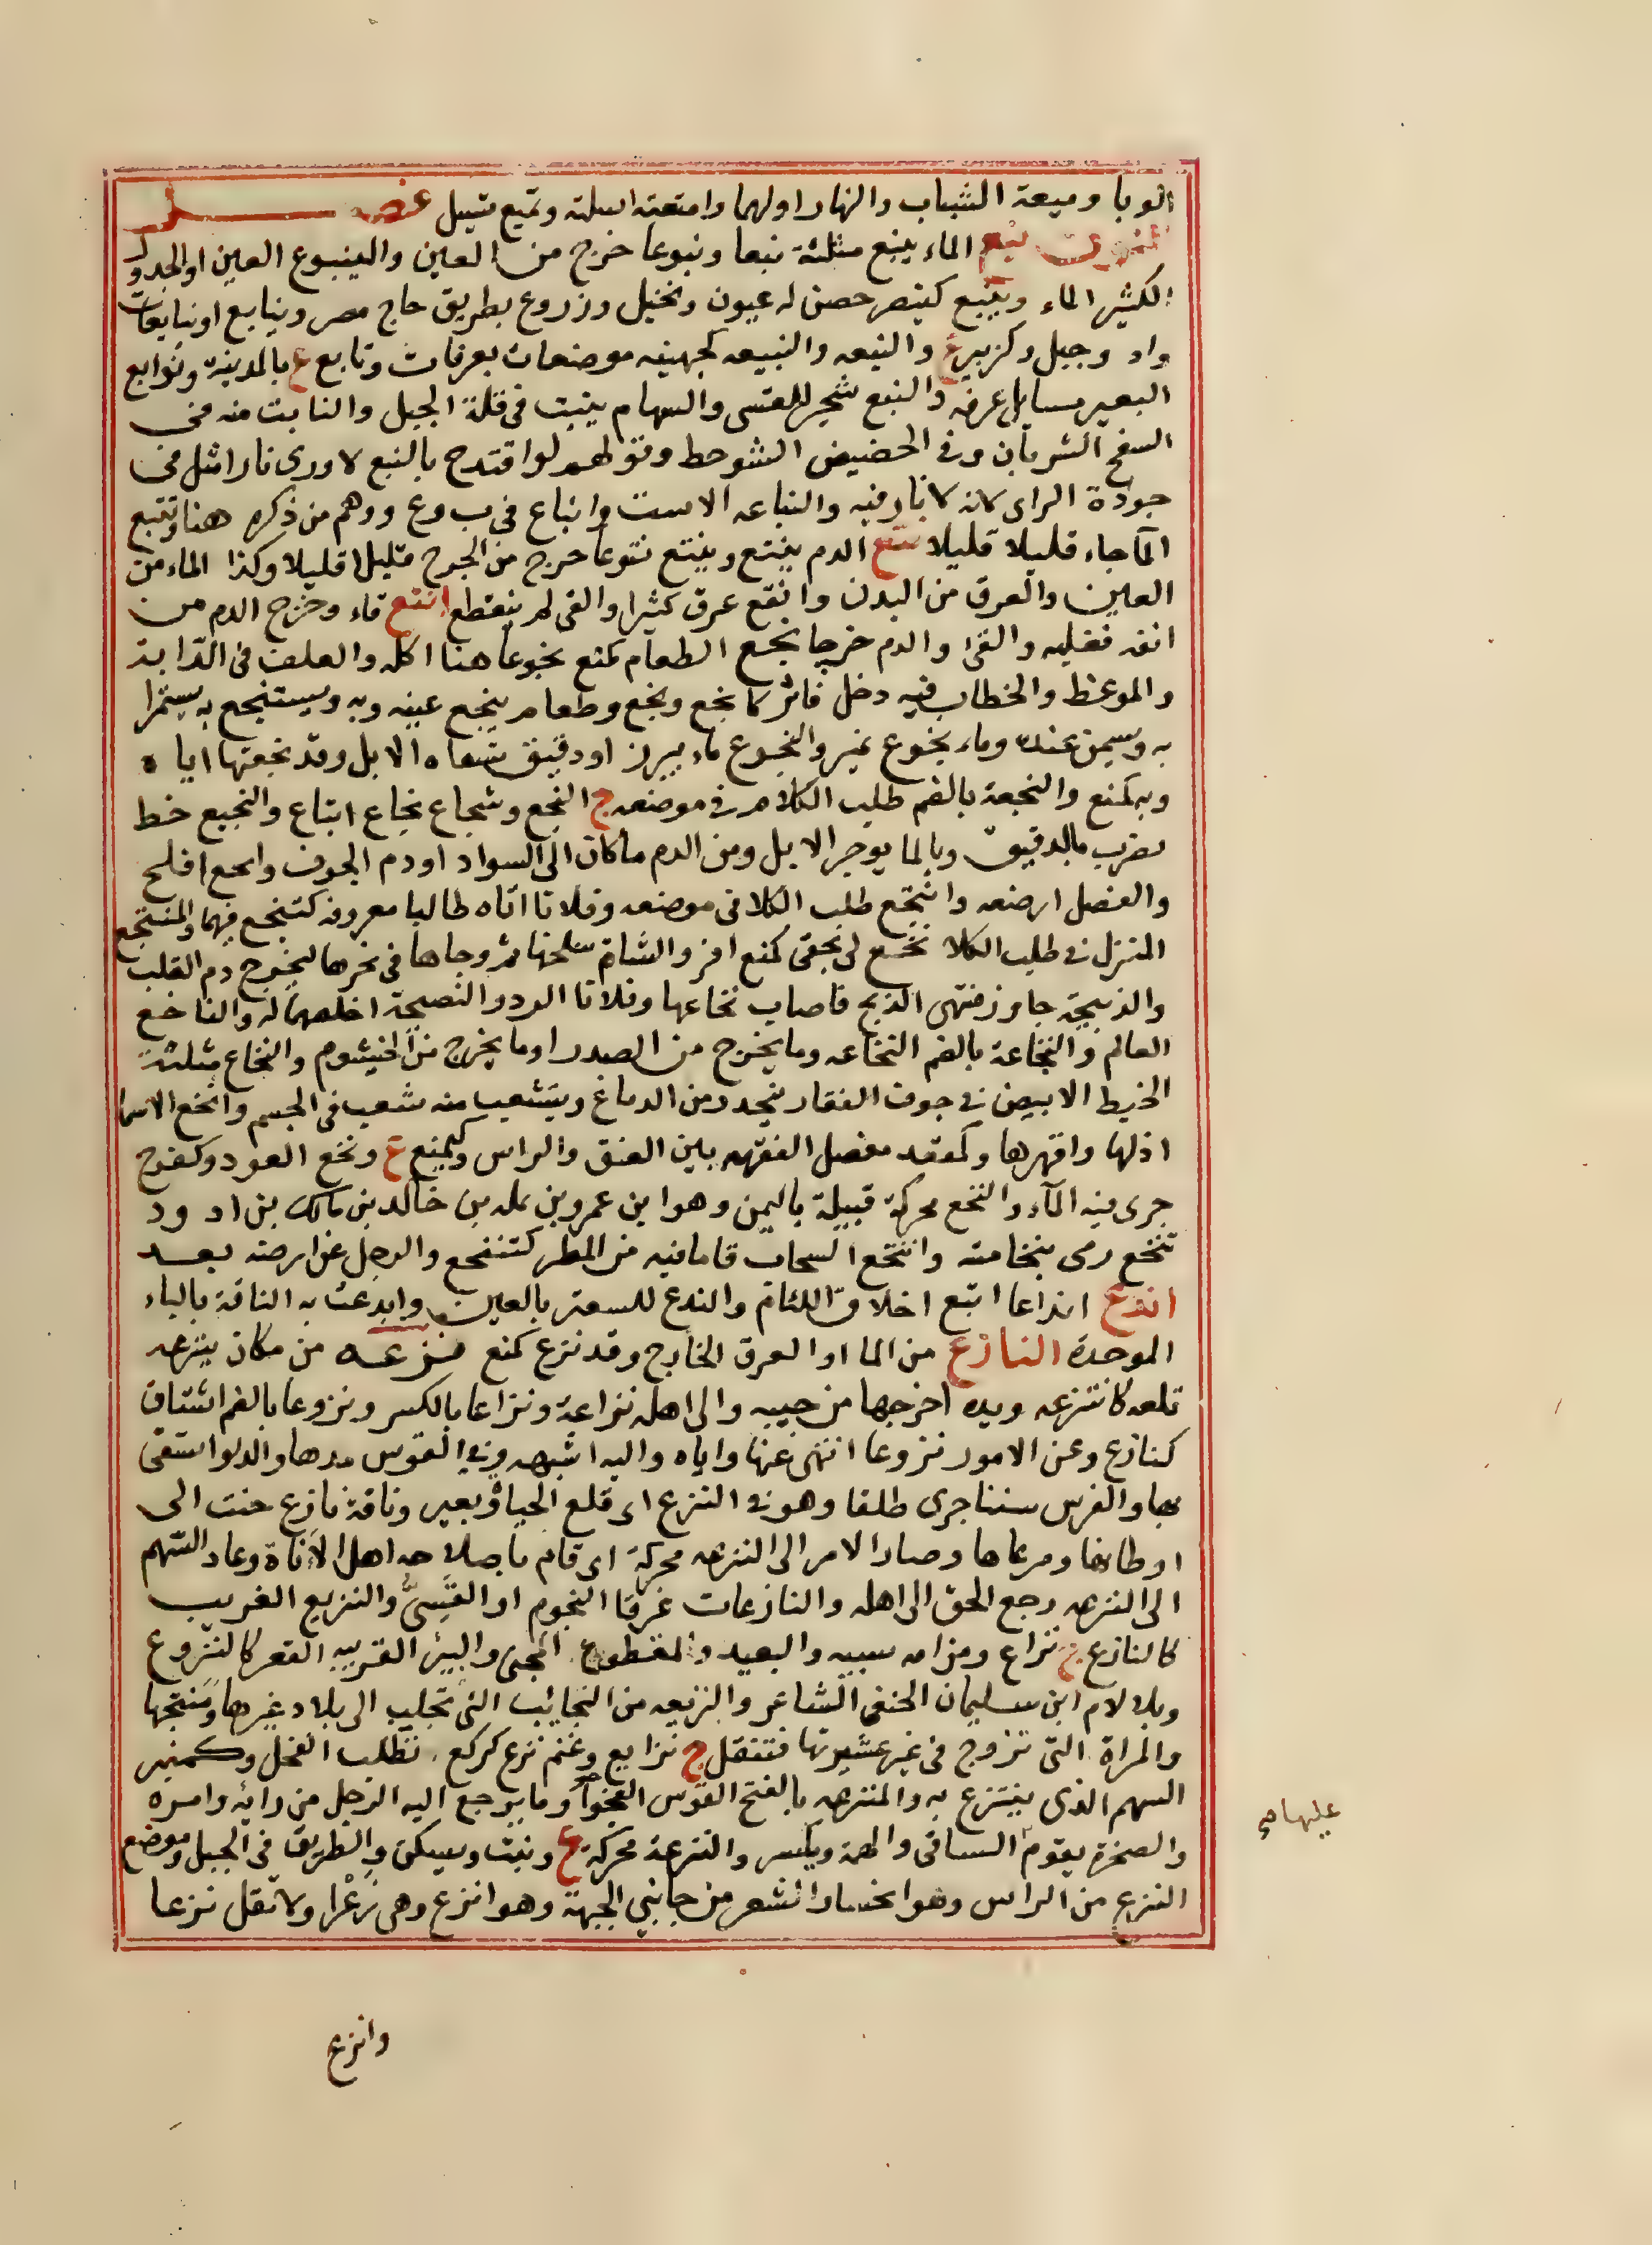 الوبا وميعة الشباب والنهار اولهما وامتعته اسلته وتميع تسيل فصل
النون نبع الماء ينبع مثلثة نبعا ونبوعا خرج من العين والينبوع العين او الجدول
الكثير الماء وينبع كينصر حصن له عيون ونخيل وزروع بطريق حاج مصر وينابع او نبايعات
واد وجبل وكزبير ع والنبعه والنبيعه كجهينه موضعان بعرفات ونابع ع بالمدينة ونوابع
البعير مسايل عرقه والنبع شجر للقسى والسهام ينبت فى قلة الجبل والنابت منه فى
السفح الشريان وفى الحضيض الشوحط وقولهم لو اقتدح بالنبع لاورى نارا مثل فى
جودة الراى لانه لا نار فيه والنباعه الاست وانباع فى ب وع ووهم من ذكره هنا وتنبع
المآ جاء قليلا قليلا نتع الدم ينتع وينتع نتوعا خرج من الجرح قليلا قليلا وكذا الماء من
العين والعرق من البدن وانتع عرق كثيرا والقى لم ينقطع انثع قاء وخرج الدم من
انفه فغلبه والقى والدم خرجا نجع الطعام كمنع نجوعا هنا اكله والعلف فى الدابة
والوعظ والخطاب فيه دخل فاثر كانجع ونجع وطعام ينجع عنه وبه ويستنجع به يستمرا
به ويسمن عنه وماء نجوع نمير والنجوع ماء ببرز او دقيق تسقاه الابل وقد نجعتها اياه
وبه كمنع والنجعة بالضم طلب الكلا فى موضعه ج النجع وشجاع نجاع اتباع والنجيع خبط
يضرب بالدقيق وبالما يوجر الابل ومن الدم ما كان الى السواد او دم الجوف وانجع افلح
والفصل ارضعه وانتجع طلب الكلا فى موضعه وفلانا اتاه طالبا معروفه كتنجع فيهما والمنتجع
المنزل فى طلب الكلا نخع لى بحقى كمنع اقر والشاة سلخها ثم وجاها فى نحرها ليخرج دم القلب
والذبيحة جاوز منتهى الذبح فاصاب نخاعها وفلانا الود والنصيحة اخلصهما له والناخع
العالم والنخاعة بالضم النخامه وما يخرج من الصدر او ما يخرج من الخيشوم والنخاع مثلثة
الخيط الابيض فى جوف الفقار ينحدر من الدماغ ويتشعب منه شعب فى الجسم وانخع الاسما
اذلها واقهرها وكمقعد مفصل الفقهه بين العنق والراس وكمنع ع ونخع العود وكفرح
جرى فيه المآء والنخع محركة قبيلة باليمن وهو ابن عمرو بن عله بن خالد بن مالك بن ادود
تنخع رمى بنخامته وانتخع السحاب قا ما فيه من المطر كتنخع والرجل عن ارضه بعد
اندع انداعا اتبع اخلاق اللئام والندع للسعتر بالعين وابدعت به الناقة بالباء
الموحدة النازع من الما او العرق الخارج وقد نزع كمنع نزعه من مكان ينزعه
قلعه كانتزعه ويده اخرجها من جيبه والى اهله نزاعة ونزاعا بالكسر ونزوعا بالضم اشتاق
كنازع وعن الامور نزوعا انتهى عنها واباه واليه اشبهه وفى القوس مدها والدلو استقى
بها والفرس سننا جرى طلقا وهو فى النزع اى قلع الحياة وبعير وناقة نازع حنت الى
اوطانها ومرعاها وصار الامر الى النزعه محركة اى قام باصلاحه اهل الاناة وعاد السهم
الى النزعه رجع الحق الى اهله والنازعات غرقا النجوم او القسى والنزيع الغريب
كالنازع ج نزاع ومن امه سبيه والبعيد والمقطوع المجى والبئر القريبه القعر كالنزوع
وبلا لام ابن سليمان الحنفى الشاعر والنزيعه من النجائب التى تجلب الى بلاد غيرها ومنتجها
والمراة التى تزوج فى غير عشيرتها فتنقل ج نزايع وغنم نزع كركع تطلب الفحل وكمنبر
السهم الذى ينتزع به والمنزعه بالفتح القوس الفجوآ وما يرجع اليه الرجل من رايه وامره
والصخرة يقوم الساقى والهمة ويكسر والنزعة محركة ع ونبت ويسكن والطريق فى الجبل وموضع
النزع من الراس وهو انحسار الشعر من جانبي الجبهة وهو انزع وهى زعرا ولا تقل نزعا
عليها
وانزع